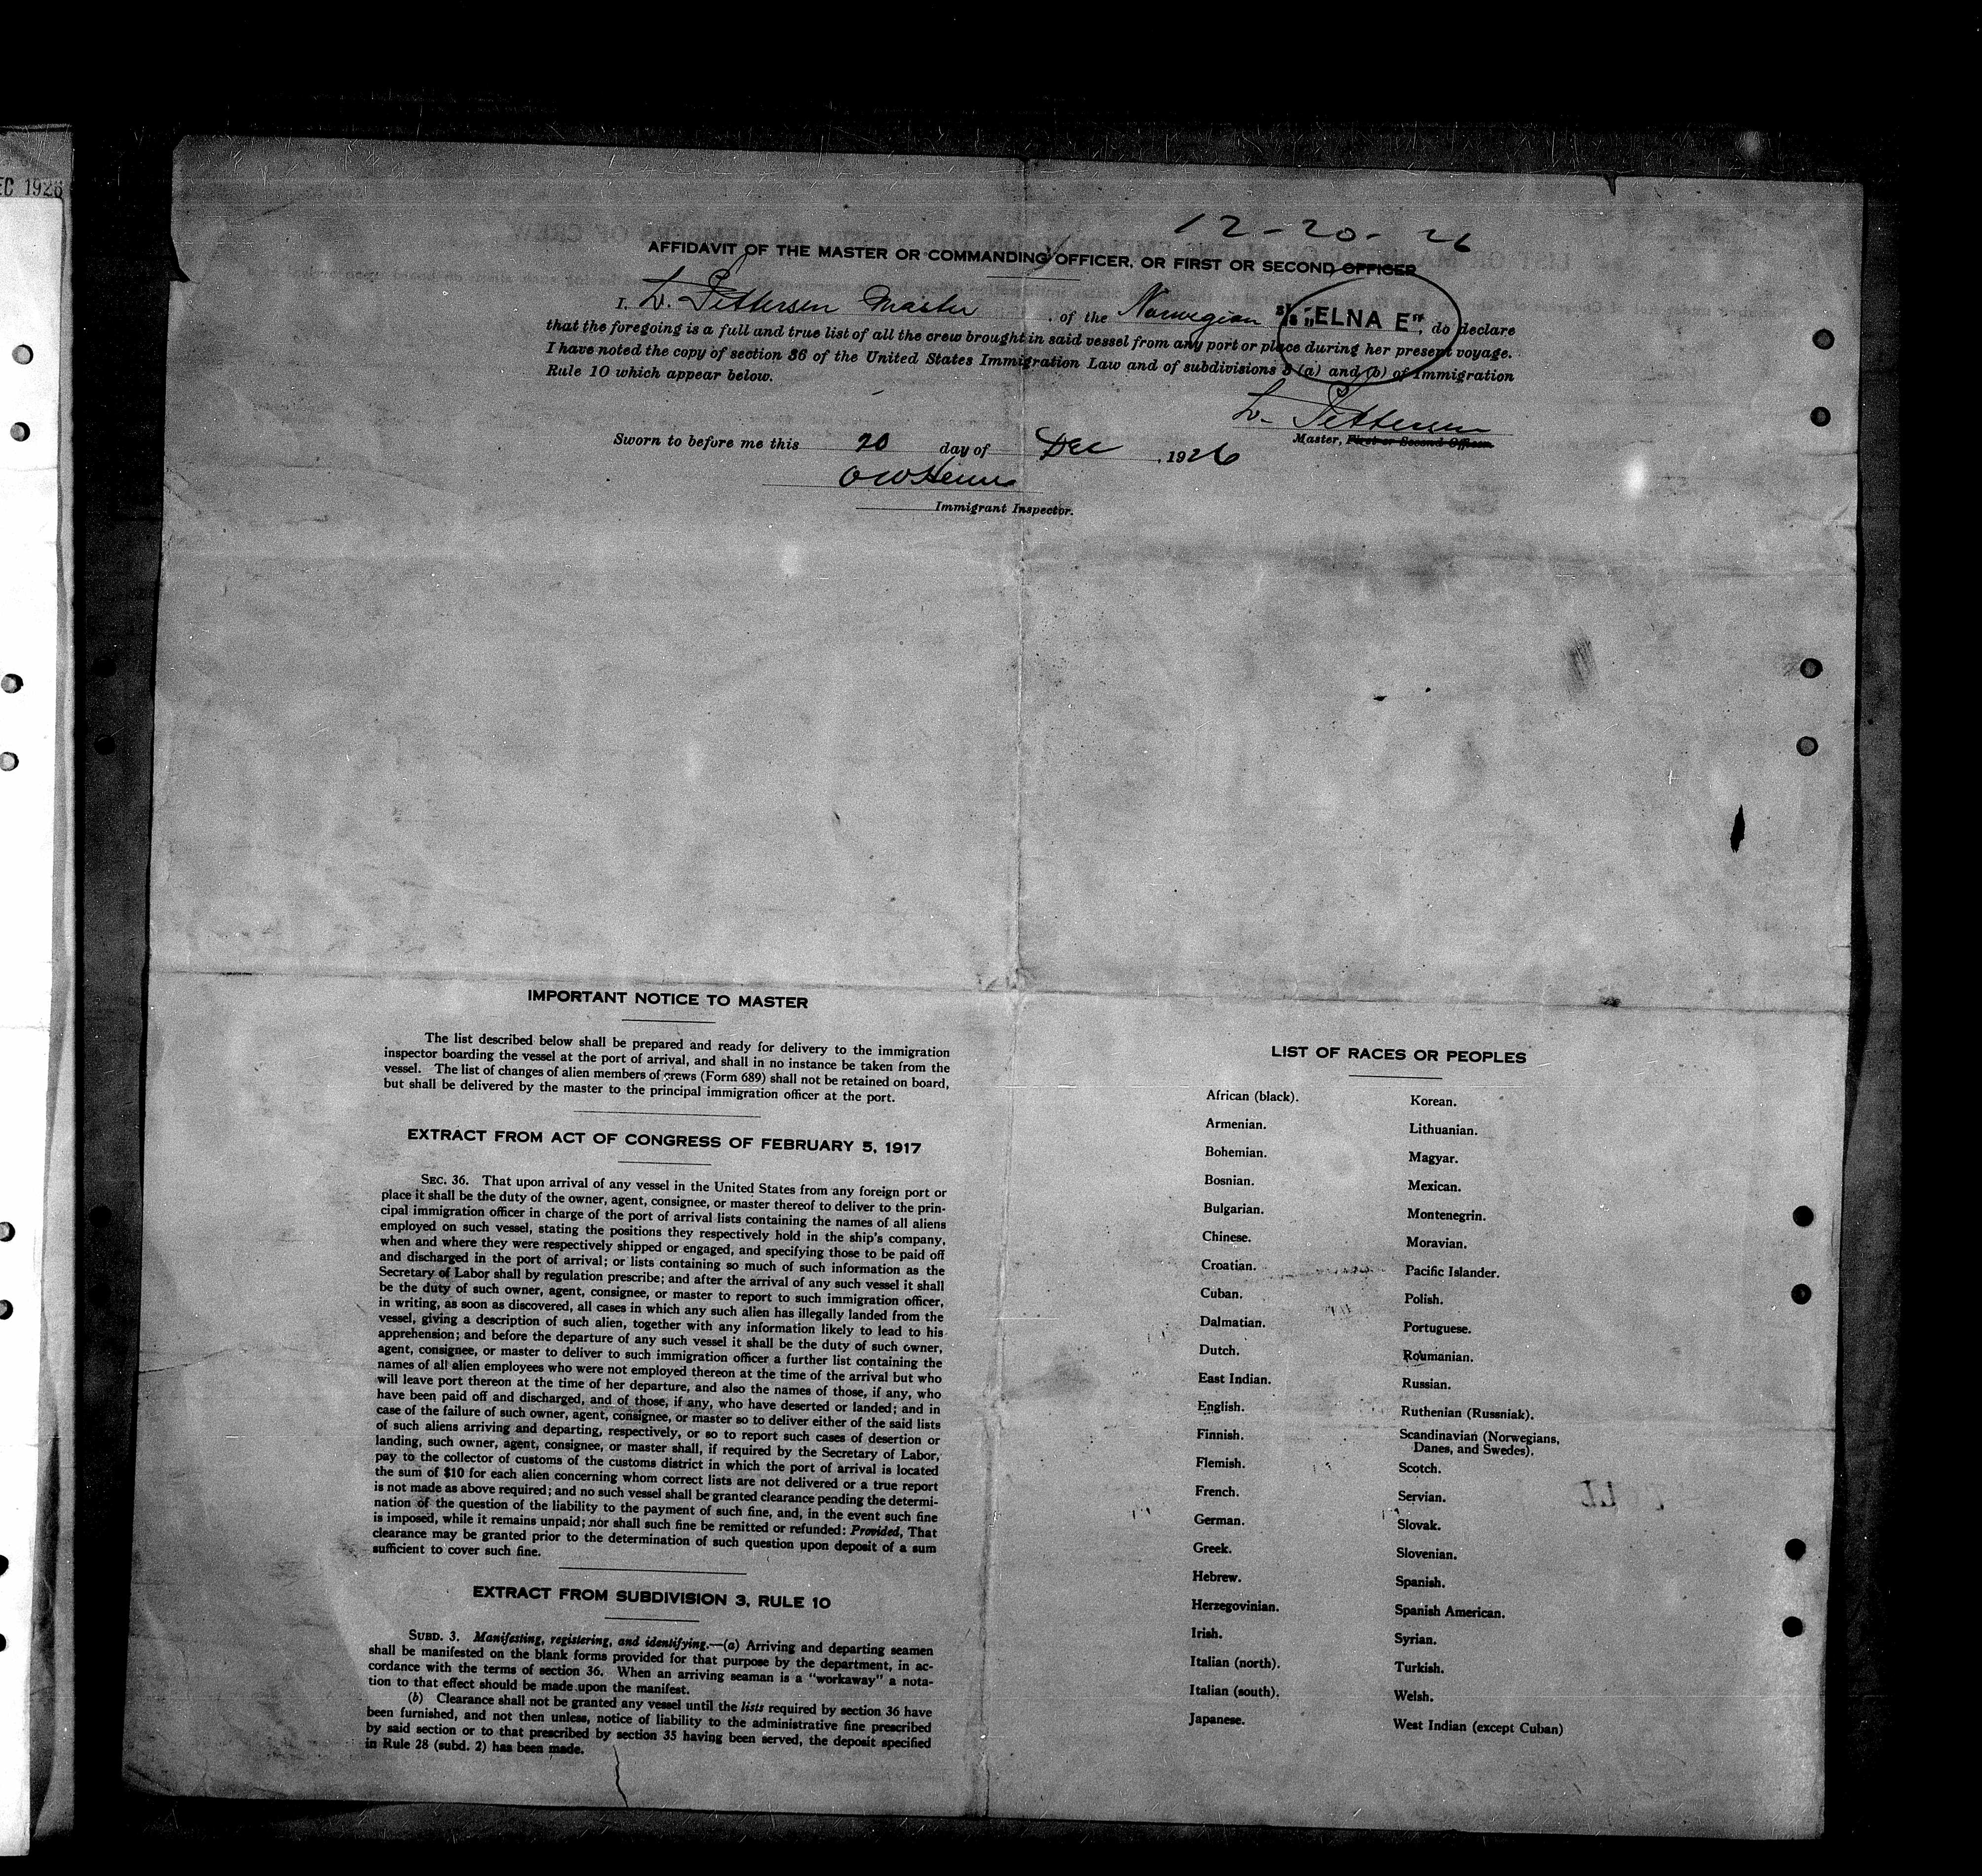 EC 1926
12-20-26
AFFIDAVIT OF THE MASTER OR COMMANDING OFFICER, OR FIRST OR SECOND OFFICER
I, L. Pettersen Master, of the Norwegian S/S "ELNA E", do declare
that the foregoing is a full and true list of all the crew brought in said vessel from any port or place during her present voyage.
I have noted the copy of section 36 of the United States Immigration Law and of subdivisions 3 (a) and (b) of Immigration
Rule 10 which appear below.
L. Pettersen
Master, First or Second Officer.
Sworn to before me this 20 day of Dec, 1926
Immigrant Inspector.
IMPORTANT NOTICE TO MASTER
The list described below shall be prepared and ready for delivery to the immigration
inspector boarding the vessel at the port of arrival, and shall in no instance be taken from the
vessel. The list of changes of alien members of crews (Form 689) shall not be retained on board,
but shall be delivered by the master to the principal immigration officer at the port.
EXTRACT FROM ACT OF CONGRESS OF FEBRUARY 5, 1917
SEC. 36. That upon arrival of any vessel in the United States from any foreign port or
place it shall be the duty of the owner, agent, consignee, or master thereof to deliver to the prin-
cipal immigration officer in charge of the port of arrival lists containing the names of all aliens
employed on such vessel, stating the positions they respectively hold in the ship's company,
when and where they were respectively shipped or engaged, and specifying those to be paid off
and discharged in the port of arrival; or lists containing so much of such information as the
Secretary of Labor shall by regulation prescribe; and after the arrival of any such vessel it shall
be the duty of such owner, agent, consignee, or master to report to such immigration officer,
in writing, as soon as discovered, all cases in which any such alien has illegally landed from the
vessel, giving a description of such alien, together with any information likely to lead to his
apprehension; and before the departure of any such vessel it shall be the duty of such owner,
agent, consignee, or master to deliver to such immigration officer a further list containing the
names of all alien employees who were not employed thereon at the time of the arrival but who
will leave port thereon at the time of her departure, and also the names of those, if any, who
have been paid off and discharged, and of those, if any, who have deserted or landed; and in
case of the failure of such owner, agent, consignee, or master so to deliver either of the said lists
of such aliens arriving and departing, respectively, or so to report such cases of desertion or
landing, such owner, agent, consignee, or master shall, if required by the Secretary of Labor,
pay to the collector of customs of the customs district in which the port of arrival is located
the sum of $10 for each alien concerning whom correct lists are not delivered or a true report
is not made as above required; and no such vessel shall be granted clearance pending the determi-
nation of the question of the liability to the payment of such fine, and, in the event such fine
is imposed, while it remains unpaid; nor shall such fine be remitted or refunded: Provided, That
clearance may be granted prior to the determination of such question upon deposit of a sum
sufficient to cover such fine.
EXTRACT FROM SUBDIVISION 3, RULE 10
SUBD. 3. Manifesting, registering, and identifying.—(a) Arriving and departing seamen
shall be manifested on the blank forms provided for that purpose by the department, in ac-
cordance with the terms of section 36. When an arriving seaman is a "workaway" a nota-
tion to that effect should be made upon the manifest.
(b) Clearance shall not be granted any vessel until the lists required by section 36 have
been furnished, and not then unless, notice of liability to the administrative fine prescribed
by said section or to that prescribed by section 35 having been served, the deposit specified
in Rule 28 (subd. 2) has been made.
LIST OF RACES OR PEOPLES
African (black).
Armenian.
Bohemian.
Bosnian.
Bulgarian.
Chinese.
Croatian.
Cuban.
Dalmatian.
Dutch.
East Indian.
English.
Finnish.
Flemish.
French.
German.
Greek.
Hebrew.
Herzegovinian.
Irish.
Italian (north).
Italian (south).
Japanese.
Korean.
Lithuanian.
Magyar.
Mexican.
Montenegrin.
Moravian.
Pacific Islander.
Polish.
Portuguese.
Roumanian.
Russian.
Ruthenian (Russniak).
Scandinavian (Norwegians,
Danes, and Swedes).
Scotch.
Servian.
Slovak.
Slovenian.
Spanish.
Spanish American.
Syrian.
Turkish.
Welsh.
West Indian (except Cuban)